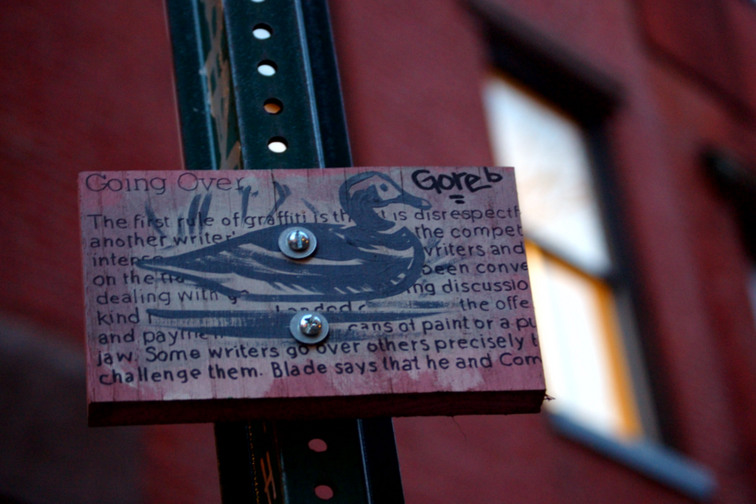 Going Over
Goreb
The first rule of graffiti is th is disrespectf
another writer' the compet
inten writers and
on the been conve
dealing with ng discussio
kind handed the offe
and payme cans of paint or a pu
jaw. Some writers go over others precisely t
challenge them. Blade says that he and Com